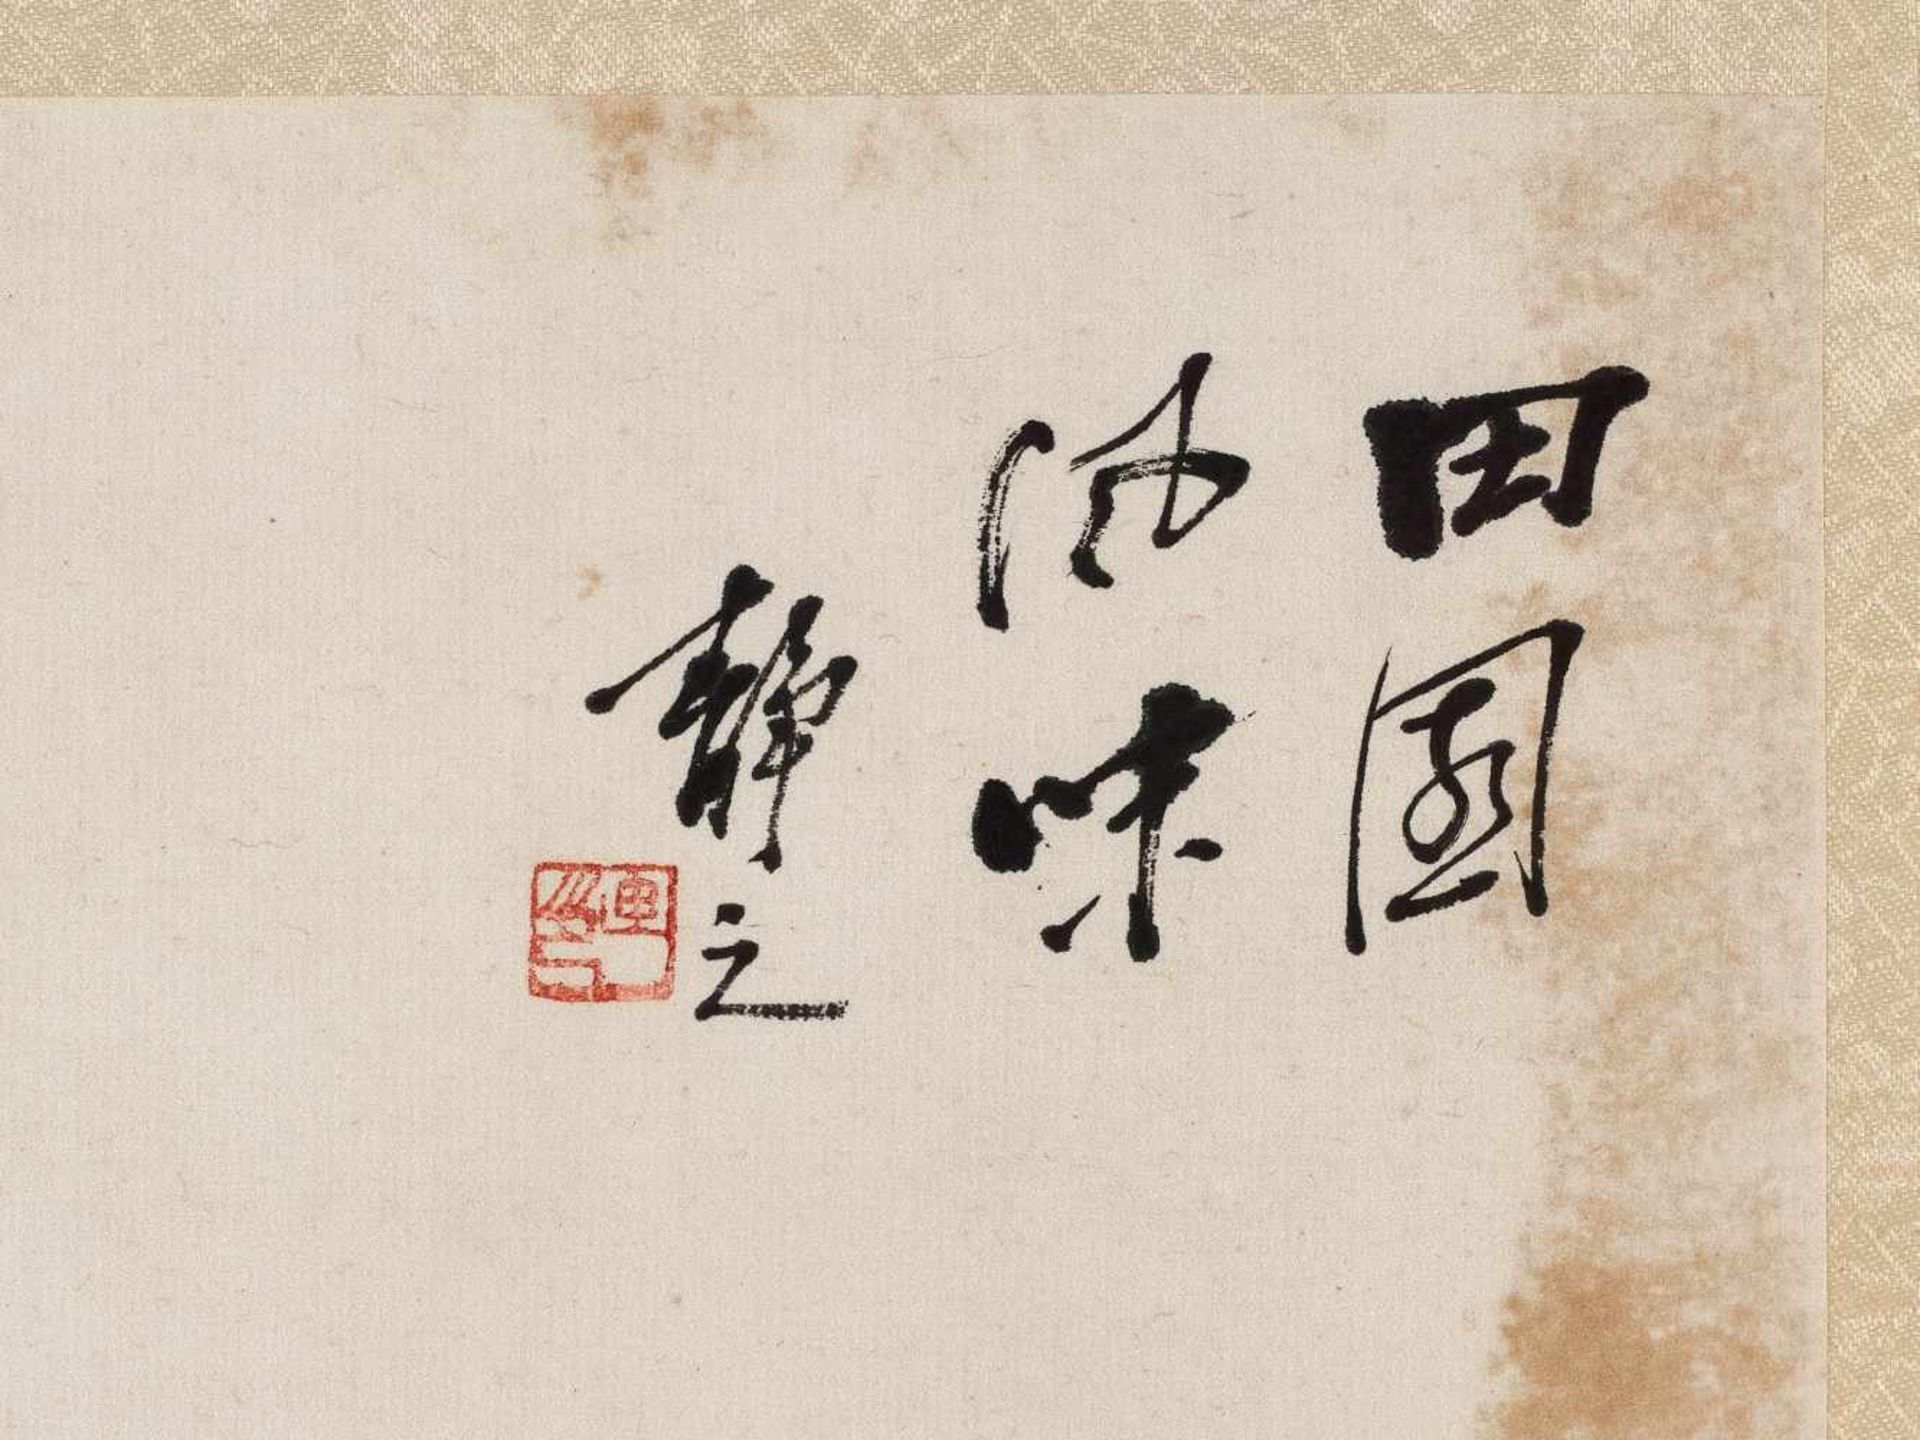 田園
風味
靜之